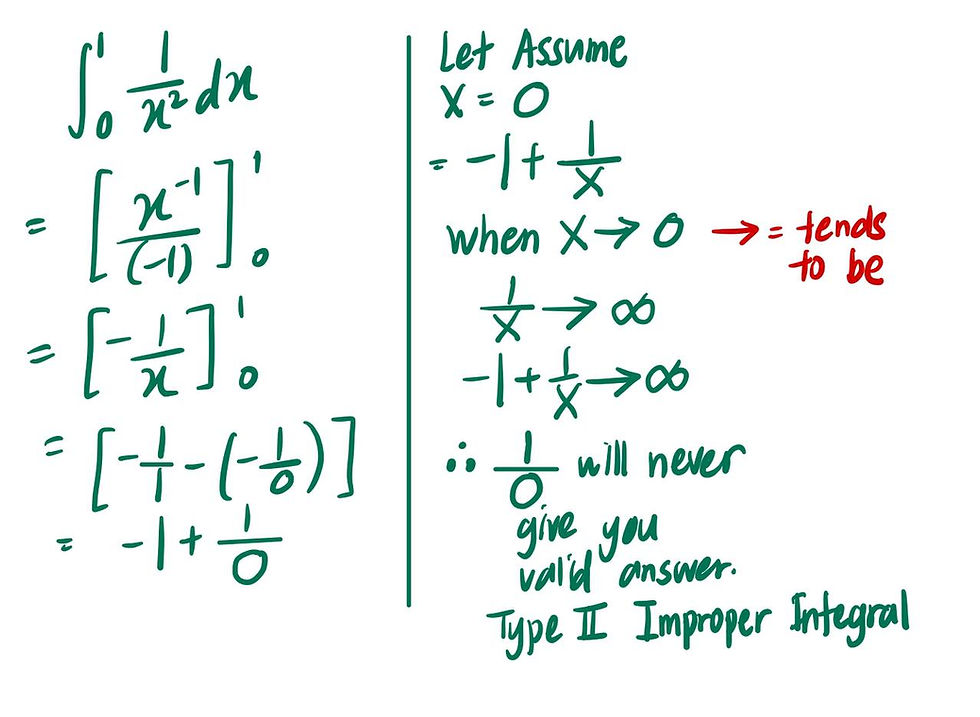 ∫₀¹ 1/x² dx
= [x⁻¹/(-1)]₀¹
= [-1/x]₀¹
= [-1/1 - (-1/0)]
= -1 + 1/0
Let Assume
X = 0
= -1 + 1/X
when X → 0 → = tends
to be
1/X → ∞
-1 + 1/X → ∞
∴ 1/0 will never
give you
valid answer.
Type II Improper Integral